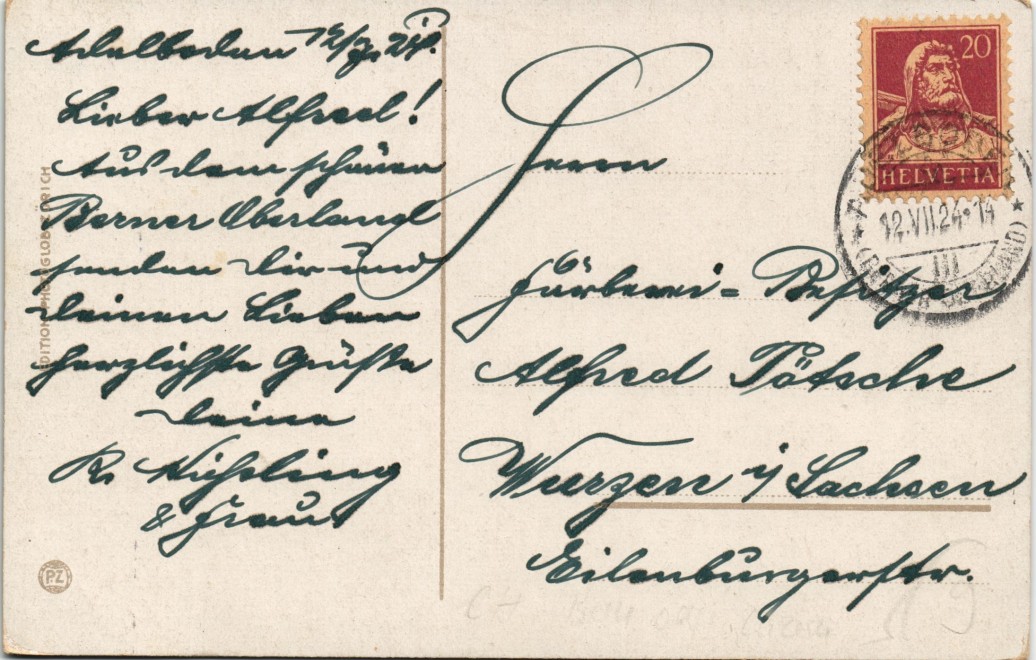 Adelboden 12/7. 24.
Lieber Alfred!
Aus dem schönen
Berner Oberland
senden Dir und
deinen Lieben
herzlichste Grüße
deine
R.
& Frau.
Herrn
Färberei-Besitzer
Alfred Pötsche
Wurzen i/ Sachsen
Eilenburgerstr.
20
HELVETIA
12.VII.24-14
III
EDITION PHOTOGLOB ZÜRICH
PZ